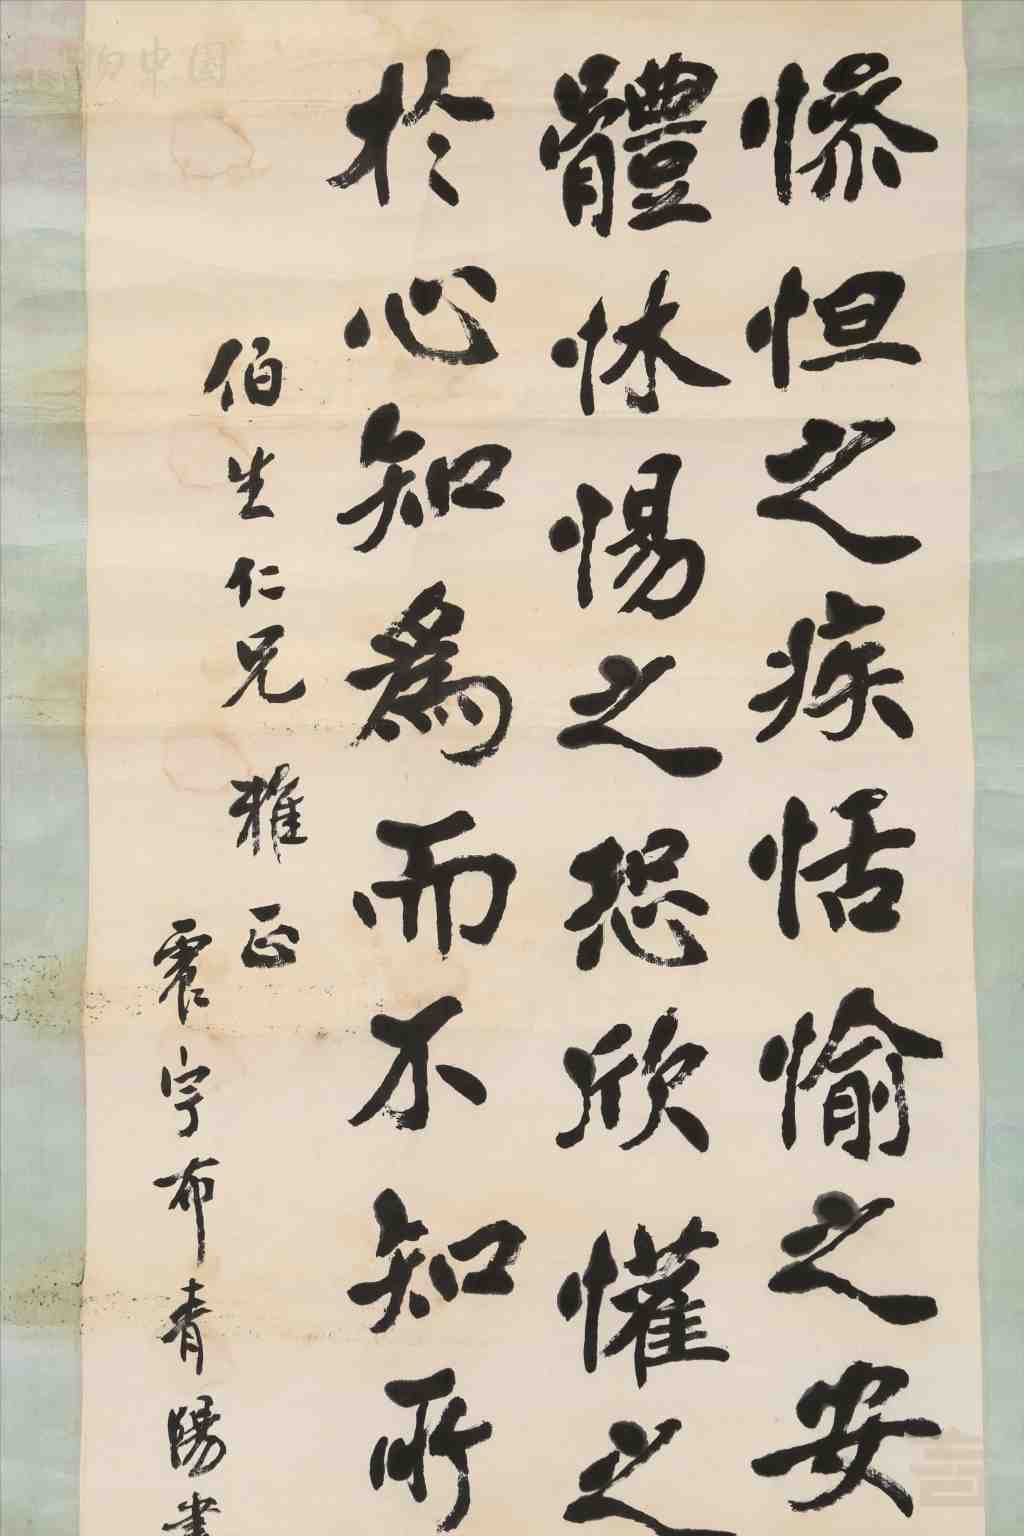 慘怛之疾恬愉之安
體怵惕之恐欣懽之
於心知爲而不知所
伯生仁兄 雅正
震宇布青陽書
中国